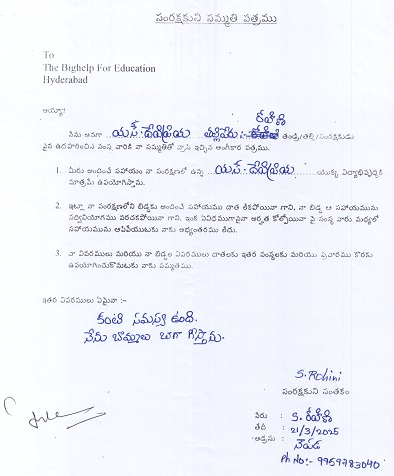 సంరక్షకుని సమ్మతి పత్రము
To
The Bighelp For Education
Hyderabad
అయ్యా!
రోహిణి
నేను అనగా యస్. దేవిప్రియ తల్లిపేరు:- తండ్రి/తల్లి/సంరక్షకుడు
పైన ఉదహరించిన సంస్థ వారికి నా సమ్మతితో వ్రాసి ఇచ్చిన అంగీకార పత్రము.
1. మీరు అందించే సహాయం నా సంరక్షణలో ఉన్న యస్. దేవిప్రియ యొక్క విద్యాభివృద్ధికి
మాత్రమే ఉపయోగిస్తాను.
2. ఇట్లూ నా సంరక్షణలోని బిడ్డకు అందించే సహాయము దాత లేకపోయినా గాని, నా బిడ్డ ఆ సహాయమును
సద్వినియోగము పరచకపోయినా గాని, ఇంక ఏవిధముగానైనా అర్హత కోల్పోయినా పై సంస్థ వారు మధ్యలో
సహాయమును ఆపివేయుటకు నాకు అభ్యంతరము లేదు.
3. నా వివరములు మరియు నా బిడ్డల వివరములు దాతలకు ఇతర సంస్థలకు మరియు ప్రచారము కొరకు
ఉపయోగించుకొనుటకు నాకు సమ్మతము.
ఇతర వివరములు ఏమైనా :-
కంటి సమస్య ఉంది.
నేను బొమ్మలు బాగా గీస్తాను.
S. Rohini
సంరక్షకుని సంతకం
పేరు : S. రోహిణి
తేదీ : 21/3/2025
అడ్రసు :
Ph No:- 9959783040